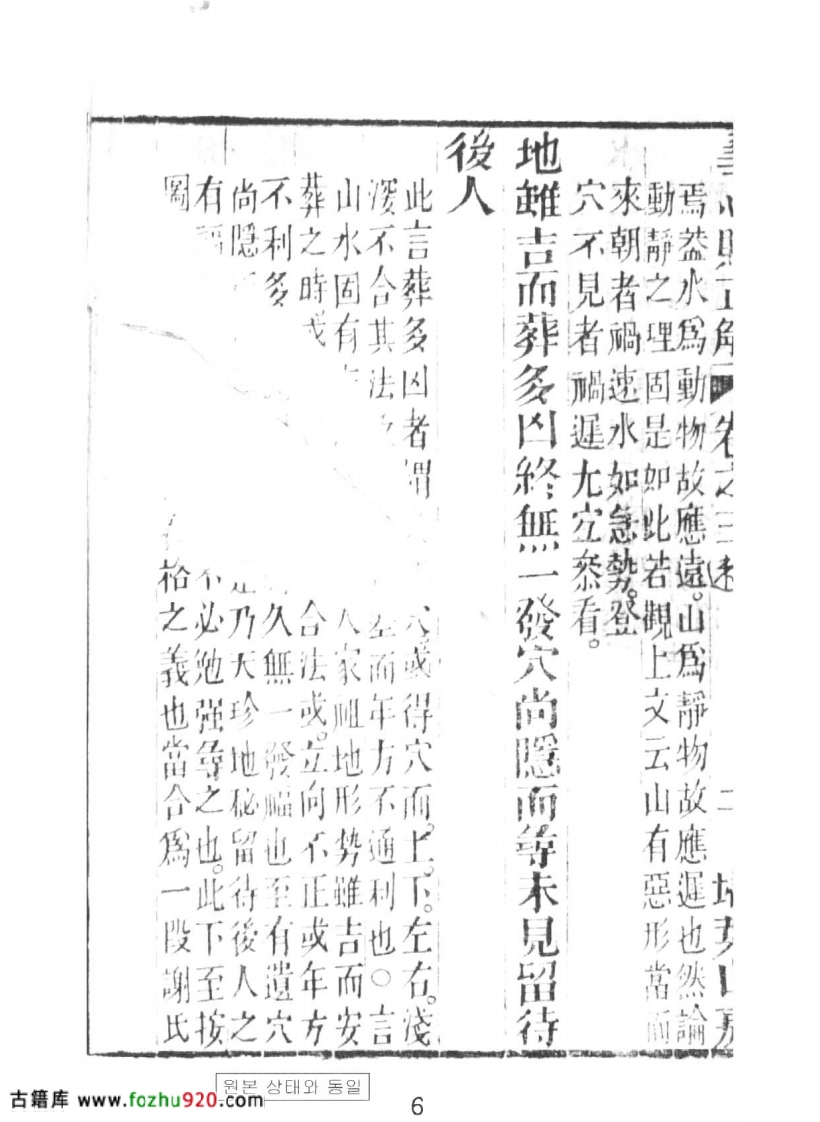 焉葢水爲動物故應遠。山爲靜物故應遲也然論
動靜之理固是如此若觀上文云山有惡形當面
來朝者禍速水如急勢。登
穴不見者禍遲尤宜叅看。
地雖吉而葬多凶終無一發穴尚隱而尋未見留待
後人
此言葬多凶者謂穴或得穴而。上。下。左右。淺
深不合其法 而年方不通利也○言
山水固有 人家祖地形勢雖吉而安
葬之時或 合法或。立向不正或年方
不利多 久無一發福也至有遺穴
尚隱 乃天珍地秘留待後人之
有福 不必勉强尋之也。此下至按
圖 格之義也當合爲一段謝氏
원본 상태와 동일
古籍库 www.fozhu920.com
6